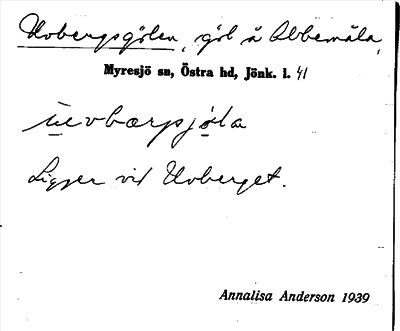 Uvbergsgölen, göl å Abbemåla,
Myresjö sn, Östra hd, Jönk. l. 41
ɯ̄evbærpsjöla
Ligger vid Uvberget.
Annalisa Anderson 1939